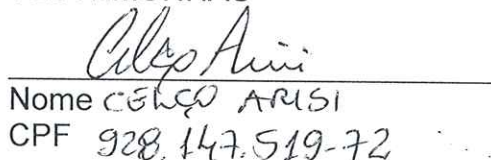 Celço Arisi
Nome CELÇO ARISI
CPF 928.147.519-72